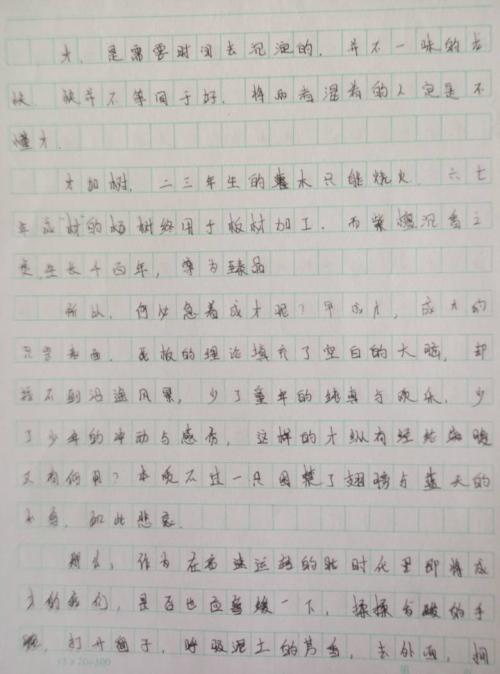 才，是需要时间去沉淀的，并不一味的去
快，快并不等同于好，
懂才。
才如树，二三年生的木只能烧火，六七
年成“材”的杨树终用于板材加工，而紫檀沉香之
类，生长千百年，奉为臻品
所以，何必急着成才呢？早成才，成才的
只是表面，死板的理论填充了空白的大脑，却
看不到沿途风景，少了童年的纯真与欢乐，少
了少年的冲动与感质，这样的才纵有经纶
又有何用？本质不过一只困禁了翅膀与蓝天的
小鸟，如此悲哀。
那么，作为在高速运转的时代里即将成
才的我们，是否也应当缓一下，揉揉的手
腕，打开窗子，呼吸泥土的芳香，去外面，拥
15×20=300
第